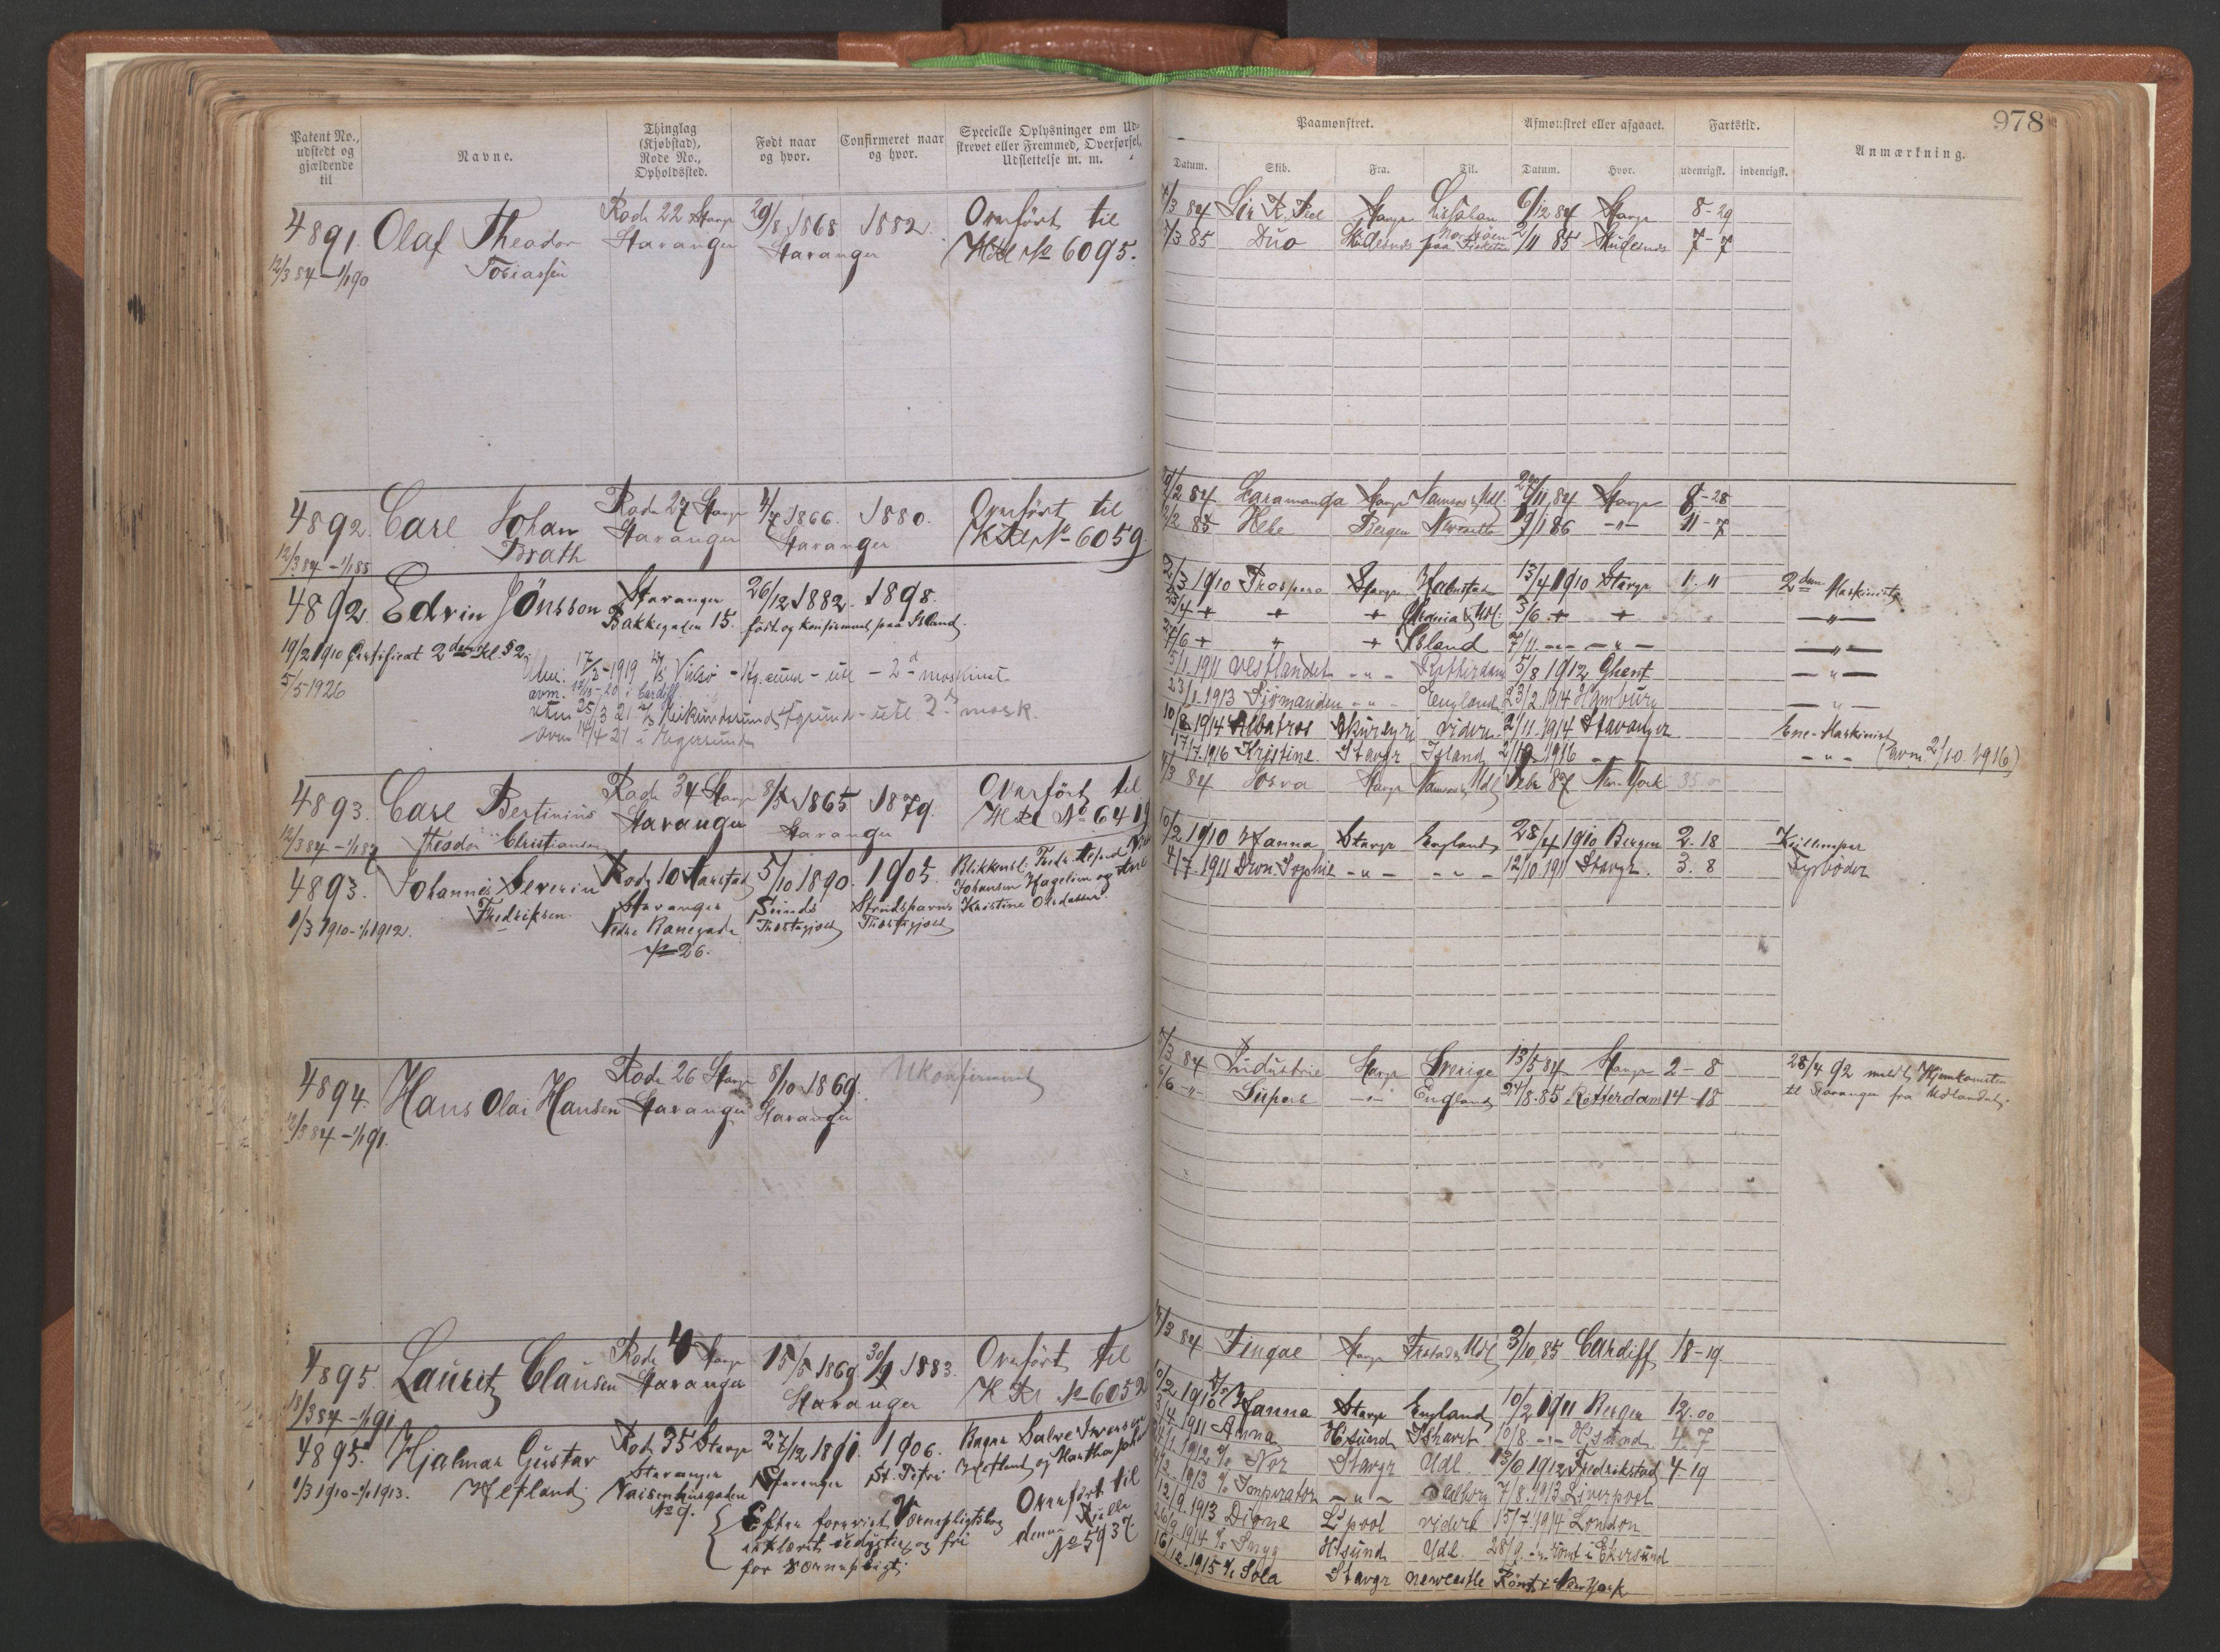 Patent No.,
udstedt og
gjældende
til
Navne.
Thinglag
(Kjøbstad),
Rode No.,
Opholdssted.
Født naar
og hvor.
Confirmeret naar
og hvor.
Specielle Oplysninger om Ud-
skrevet eller Fremmed, Overførsel,
Udslettelse m. m.
4891. Olaf Theodor Rode 22 Stavgr 29/8 1868 1882. Overført til
12/3 84 – 1/1 90 Tobiassen Stavanger Stavanger No 6095.
4892. Carl Johan Rode 27 Stavgr 4/7 1866. 1880. Overført til
12/3 84 – 1/1 88 Brath Stavanger Stavanger No 6059.
4892. Edvin Jönsson Stavanger 26/12 1882. 1898.
Bakkegaden 15. født og konfirmeret paa Island.
19/2 1910 Certificat 2den Kl. § 2.
5/5 1926
17/3 – 1919 – 2d maskinist
avm. i Cardiff
25/3 21 Eikundasund Egersund – utl 2d mask.
avm 14/4 21 i Egersund
4893. Carl Bertinius Rode 34 Stavgr 8/5 1865 1879. Overført til
12/3 84 – 1/1 87 Theodor Christiansen Stavanger Stavanger No 6419
4893. Johannes Severin Rode 10 Harstad 5/10 1890. 1905. Blikkensl. Fredr.
Fredriksen Stavanger Sunds Strudshavns Johansen Hagelien og
1/3 1910 – 1/1 1912. Nedre Banegade Præstegjæld Præstegjæld Kristine Olsdatter.
No 26.
4894. Hans Olai Hansen Rode 26 Stavgr 8/10 1869. Ukonfirmeret
12/3 84 – 1/1 91. Stavanger Stavanger
4895. Lauritz Clausen Rode 4 Stavgr 15/5 1869. 30/9 1883. Overført til
18/3 84 – 1/1 91 Stavanger Stavanger No 6052
4895. Hjalmar Gustav Rode 35 Stavgr 27/12 1891. 1906. Salve Iversen
1/3 1910 – 1/1 1913. Hetland Stavanger Stavanger St. Petri Hetland og Martha
Vaisenhusgaden
No 9.
Efter forevist Værnepligtsbog Overført til
erklæret udygtig og fri denne Rulle
for værnepligt. No 5937.
978
Paamønstret.
Afmønstret eller afgaaet.
Fartstid.
Anmærkning.
Datum. Skib. Fra. Til. Datum. Hvor. udenrigsk. indenrigsk.
/3 84 Sir R. Peel Stavgr Lissabon 6/12 84 Stavgr 8–29
/3 85 Duo Skudesnes paa Fisketur 2/11 85 Skudesnes 7–7
/2 84 Stavgr /11 84 Stavgr 8–28
/2 85 Hebe Bergen Newcastle 9/1 86 –"– 11–7
2/3 1910 Prospero Stavgr Halmstad 13/4 1910 Stavgr 1. 11 2den Maskinist
23/4 + + + 3/6 + + – " –
27/6 + " + Island 7/11 – " – – " –
5/1 1911 Vestlandet – " – Rotterdam 5/8 1912 Ghent – " –
23/1 1913 Sjömanden – " – England 23/2 1914 Hamburg – " –
10/8 1914 Albatros videre 2/11 1914 Stavanger Ene-Maskinist
17/7 1916 Kristine Stavgr Island 2/10 1916 – " – – " – (avm. 2/10 1916)
/3 84 Stavgr Febr 87 New York 35
10/2 1910 Hanna Stavgr England 28/4 1910 Bergen 2. 18 Kullemper
4/7 1911 Dron. Sophie – " – – " – 12/10 1911 Stavgr. 3. 8 Fyrbøder
/3 84 Industrie Stavgr Sverige 13/5 84 Stavgr 2–8 28/4 92 meldt Hjemkomsten
/6 –"– Superb –"– England 24/8 85 Rotterdam 14–18 til Stavanger fra Udlandet.
/3 84 Fingal Stavgr 3/10 85 Cardiff 18–19.
10/2 1910 Hanna Stavgr England 10/2 1911 Bergen 12. 00
3/4 1911 Anna Hsund Ishavet 10/8 – " – Hsund 4. 7
1912 Nor Stavgr Udl. 1912 Fredrikstad 4–19
1913 Imperator – " – Aalborg 7/8 1913 Liverpool
12/9 1913 Dione L'pool videre 15/7 1914 London
26/9 1914 Snyg H'sund Udl. 28/9 – " – rømt i Ekersund
16/12 1915 Sola Stavgr Newcastle Rømt i New York